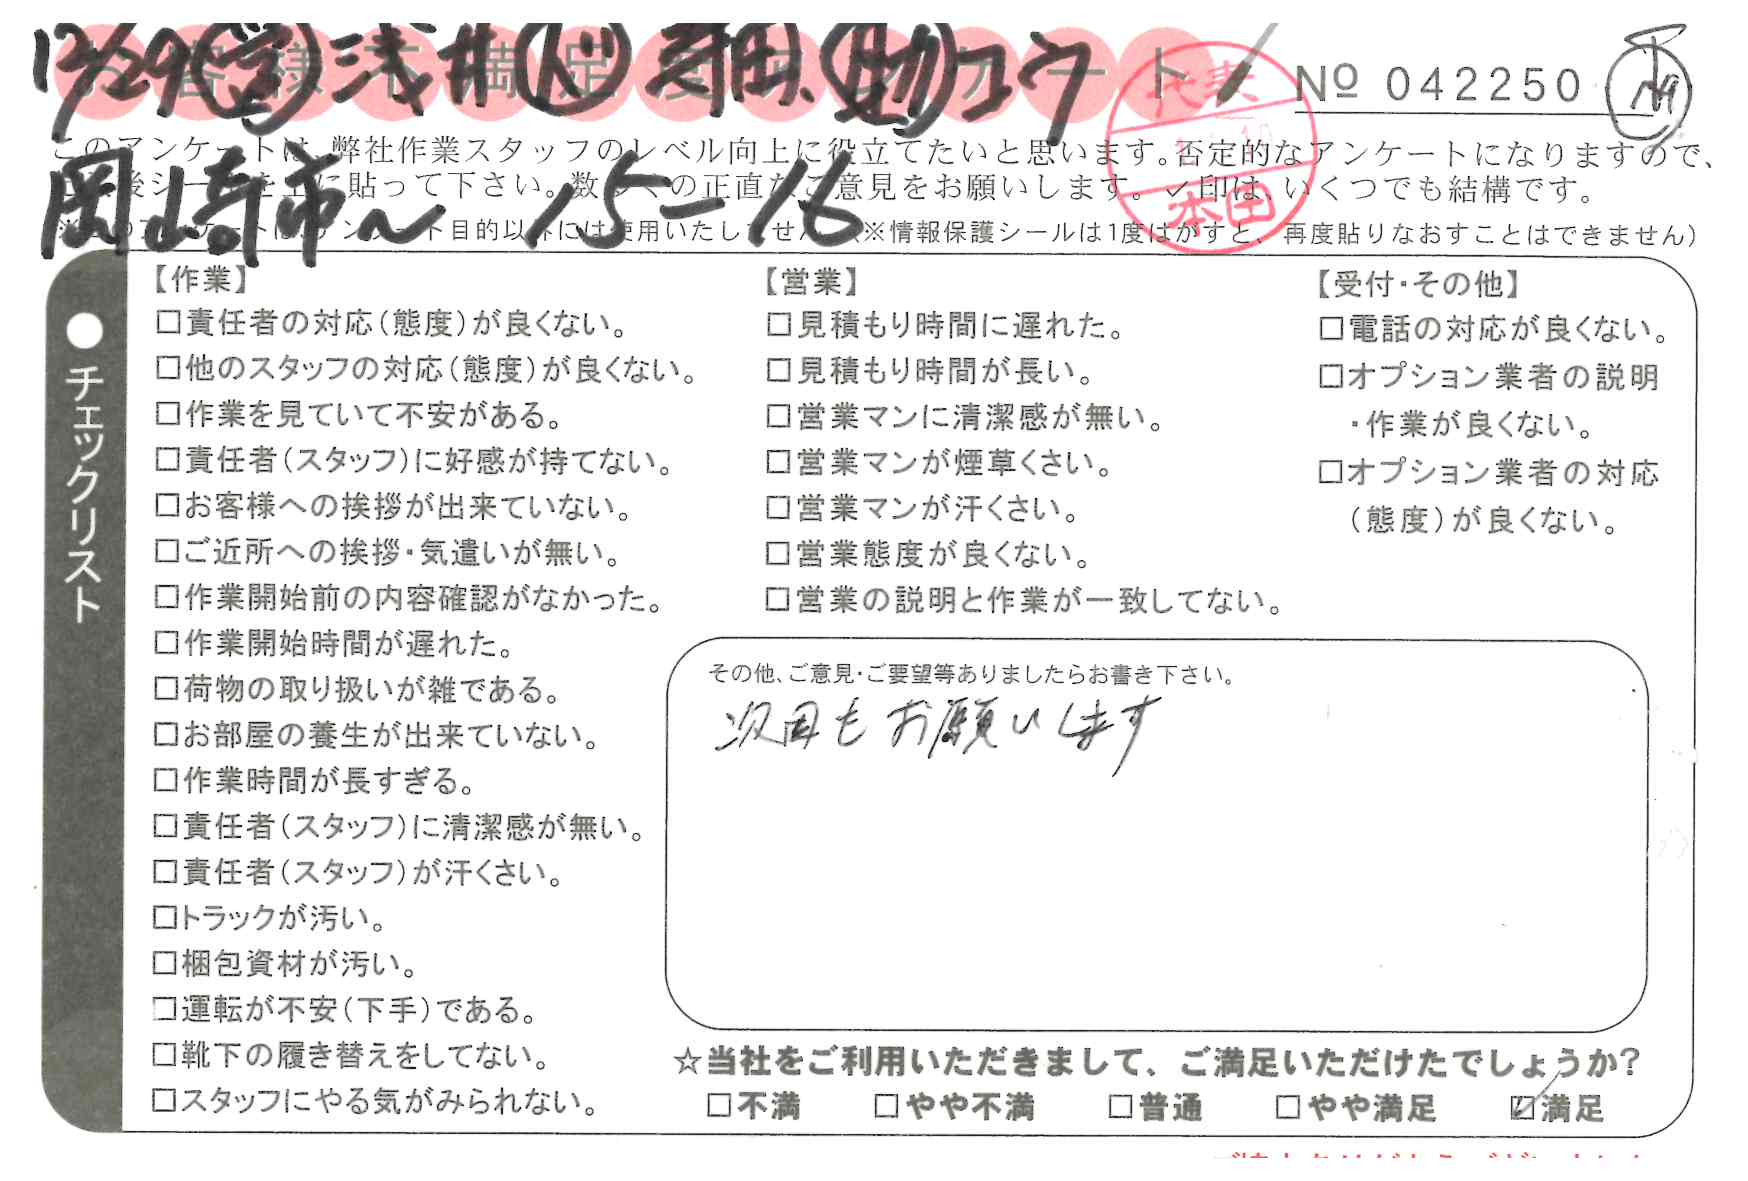 お客様不満足度アンケート
12/29 浅井
コウ
№ 042250
代表
本田
このアンケートは、弊社作業スタッフのレベル向上に役立てたいと思います。否定的なアンケートになりますので、
貼って下さい。数多くの正直なご意見をお願いします。✓印は、いくつでも結構です。
岡崎市〜 15-16
目的以外には使用いたしません (※情報保護シールは1度はがすと、再度貼りなおすことはできません)
●チェックリスト
【作業】
□責任者の対応(態度)が良くない。
□他のスタッフの対応(態度)が良くない。
□作業を見ていて不安がある。
□責任者(スタッフ)に好感が持てない。
□お客様への挨拶が出来ていない。
□ご近所への挨拶・気遣いが無い。
□作業開始前の内容確認がなかった。
□作業開始時間が遅れた。
□荷物の取り扱いが雑である。
□お部屋の養生が出来ていない。
□作業時間が長すぎる。
□責任者(スタッフ)に清潔感が無い。
□責任者(スタッフ)が汗くさい。
□トラックが汚い。
□梱包資材が汚い。
□運転が不安(下手)である。
□靴下の履き替えをしてない。
□スタッフにやる気がみられない。
【営業】
□見積もり時間に遅れた。
□見積もり時間が長い。
□営業マンに清潔感が無い。
□営業マンが煙草くさい。
□営業マンが汗くさい。
□営業態度が良くない。
□営業の説明と作業が一致してない。
【受付・その他】
□電話の対応が良くない。
□オプション業者の説明
・作業が良くない。
□オプション業者の対応
(態度)が良くない。
その他、ご意見・ご要望等ありましたらお書き下さい。
次回もお願いします
☆当社をご利用いただきまして、ご満足いただけたでしょうか?
□不満 □やや不満 □普通 □やや満足 ☑満足